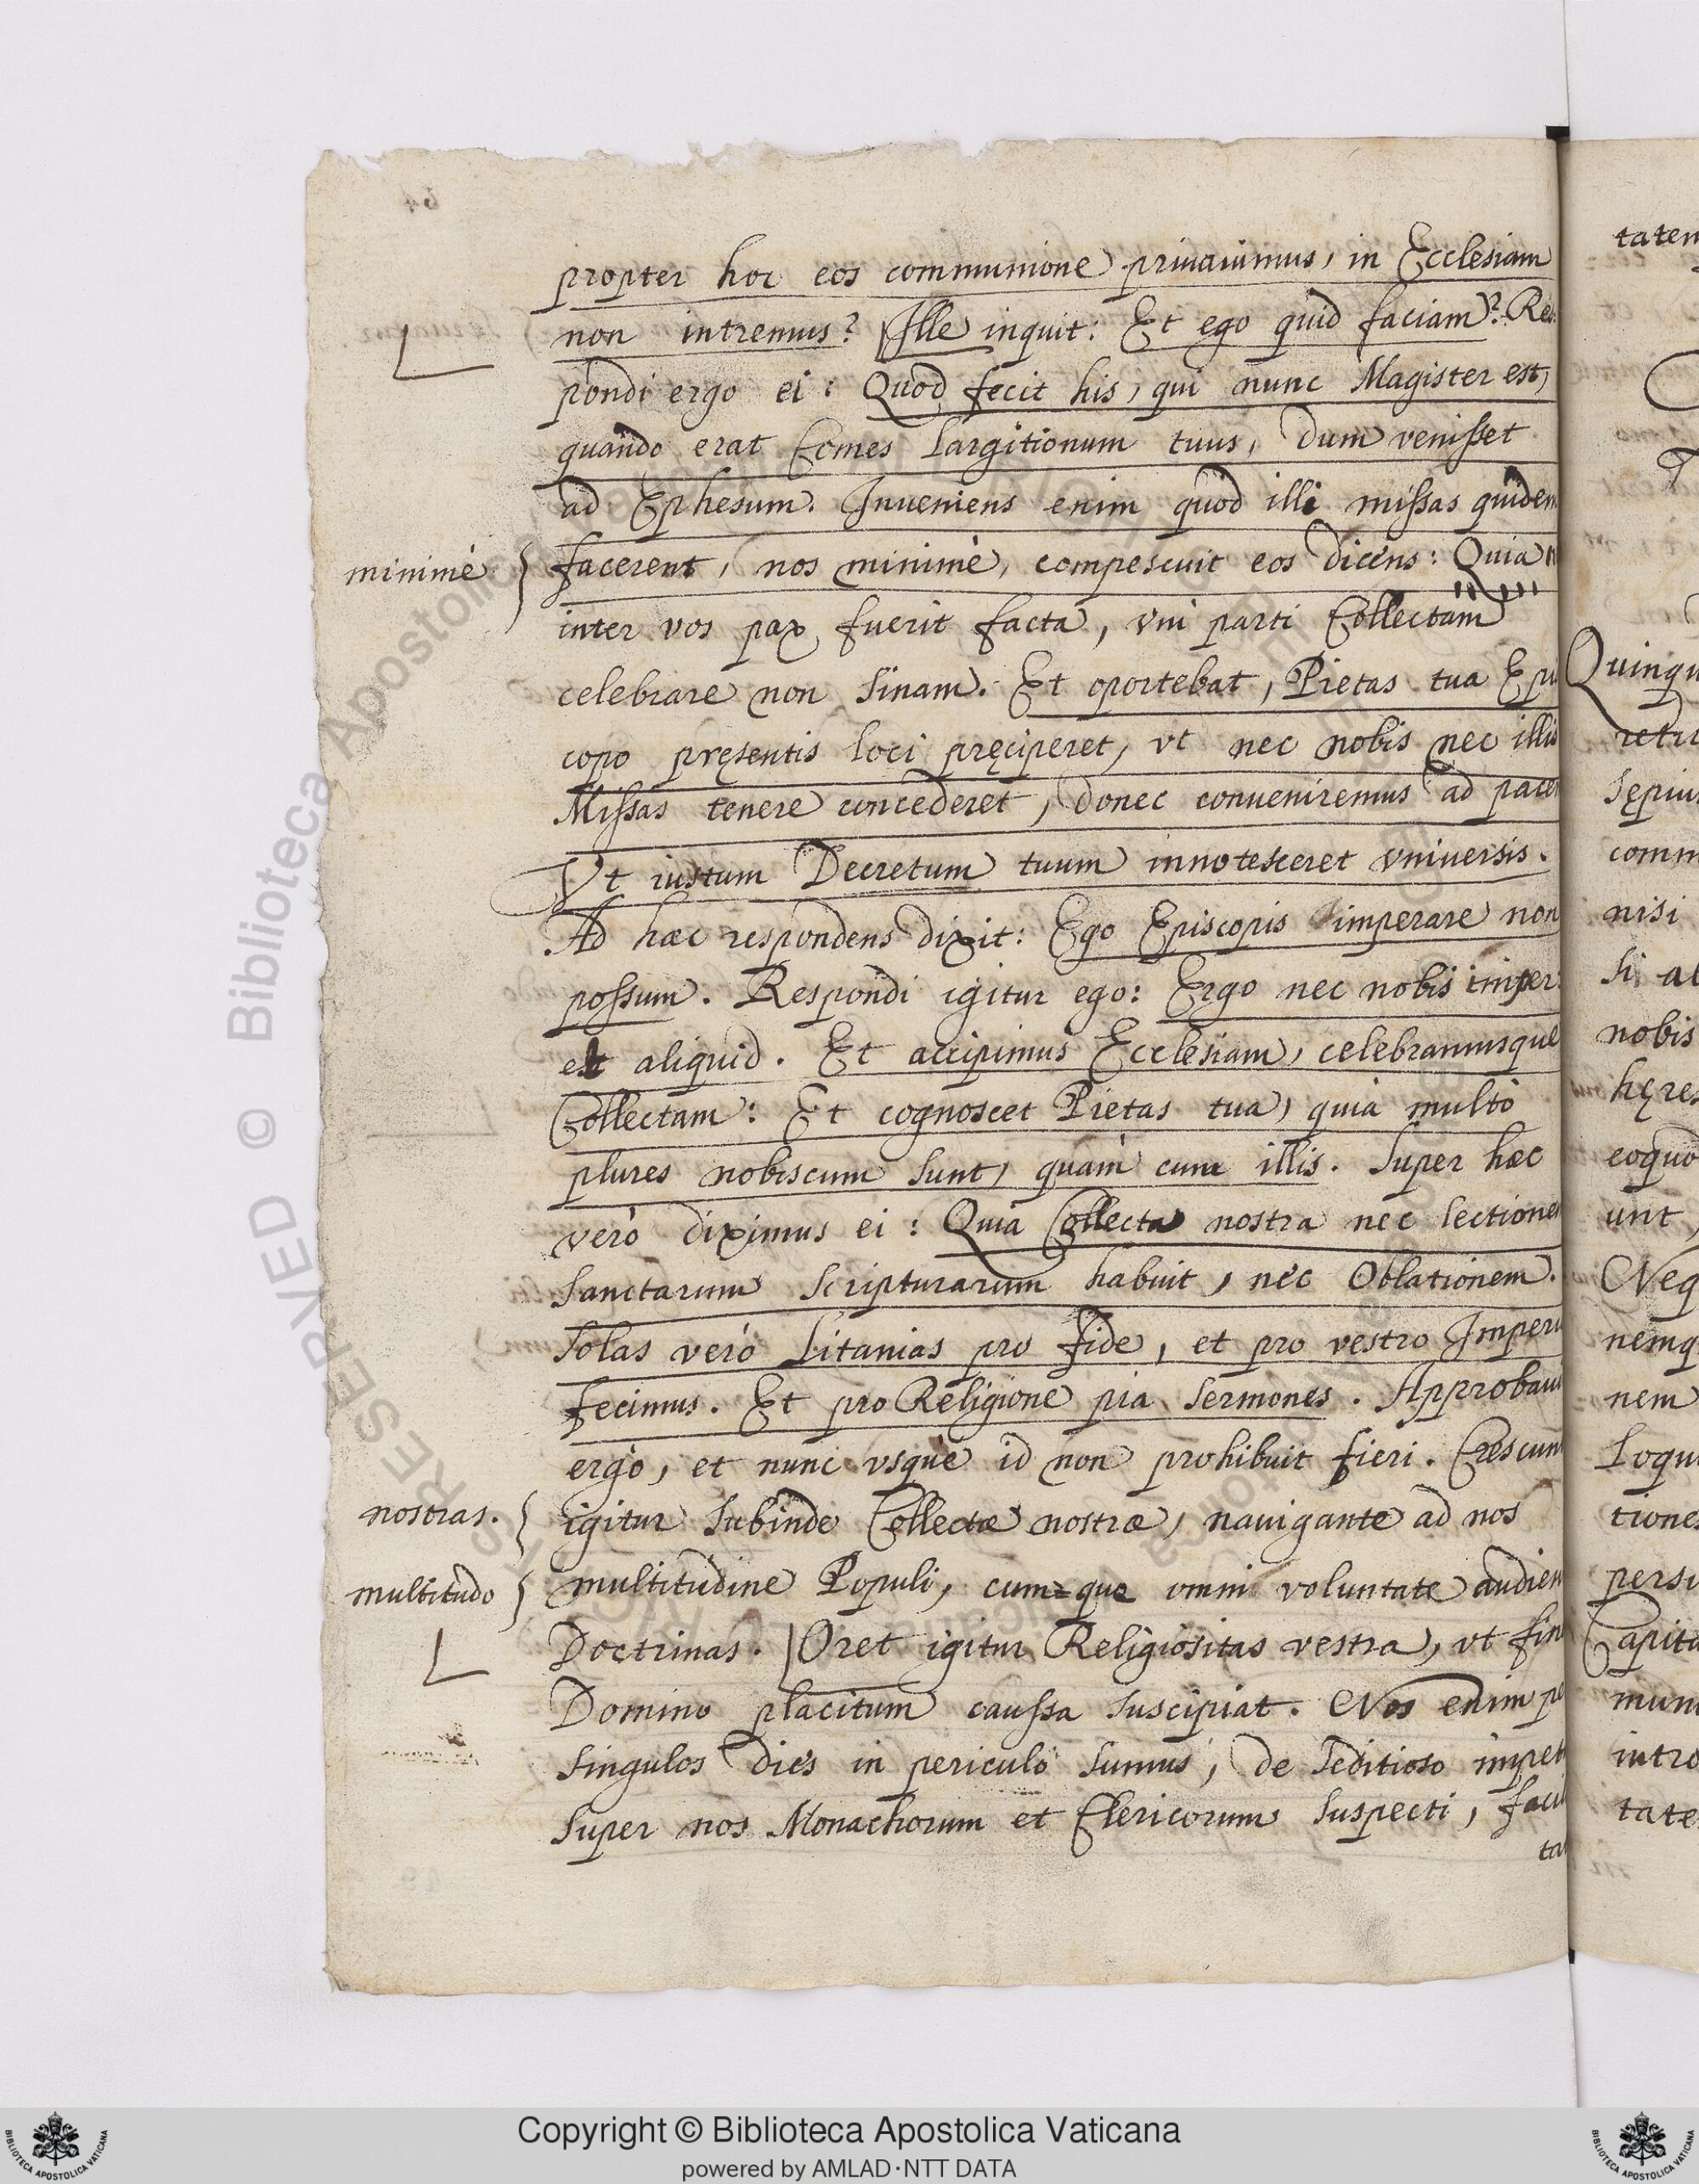 propter hoc eos communione priuauimus, in Ecclesiam
non intremus? Ille inquit: Et ego quid faciam? Res:
pondi ergo ei: Quod fecit his, qui nunc Magister est,
quando erat Comes Largitionum tuus, dum venisset
ad Ephesum. Inueniens enim quod illi missas quidem
minimè facerent, nos minimè, compescuit eos dicens: Quia
inter vos pax fuerit facta, vni parti Collectam
celebrare non sinam. Et oportebat, Pietas tua
copo pręsentis loci pręciperet, vt nec nobis nec illis
Missas tenere concederet, donec conueniremus ad
Vt iustum Decretum tuum innotesceret vniuersis.
Ad hæc respondens dixit: Ego Episcopis imperare non
possum. Respondi igitur ego: Ergo nec nobis imper:
et aliquid. Et accipimus Ecclesiam, celebramusque
Collectam: Et cognoscet Pietas tua, quia multò
plures nobiscum sunt, quàm cum illis. Super hæc
verò diximus ei: Quia Collecta nostra nec
Sanctarum Scripturarum habuit, nec Oblationem.
Solas verò Litanias pro fide, et pro vestro
fecimus. Et pro Religione pia sermones.
ergò, et nunc vsquè id non prohibuit fieri.
nostras. igitur subinde Collectæ nostræ, nauigante ad nos
multitudo multitudine Populi, cum=que omni voluntate
Doctrinas. Oret igitur Religiositas vestra, vt
Domino placitum caussa suscipiat. Nos enim
singulos dies in periculo sumus, de seditioso
super nos Monachorum et Clericorum suspecti,
Quinqu
comm
nisi
nobis
hęres
eoquo
unt,
Neq
nemq
nem
Loqu
tiones
persi
Capita
mun
intro
tate
RESERVED © Biblioteca Apostolica
Copyright © Biblioteca Apostolica Vaticana
powered by AMLAD·NTT DATA
BIBLIOTECA APOSTOLICA VATICANA
BIBLIOTECA APOSTOLICA VATICANA